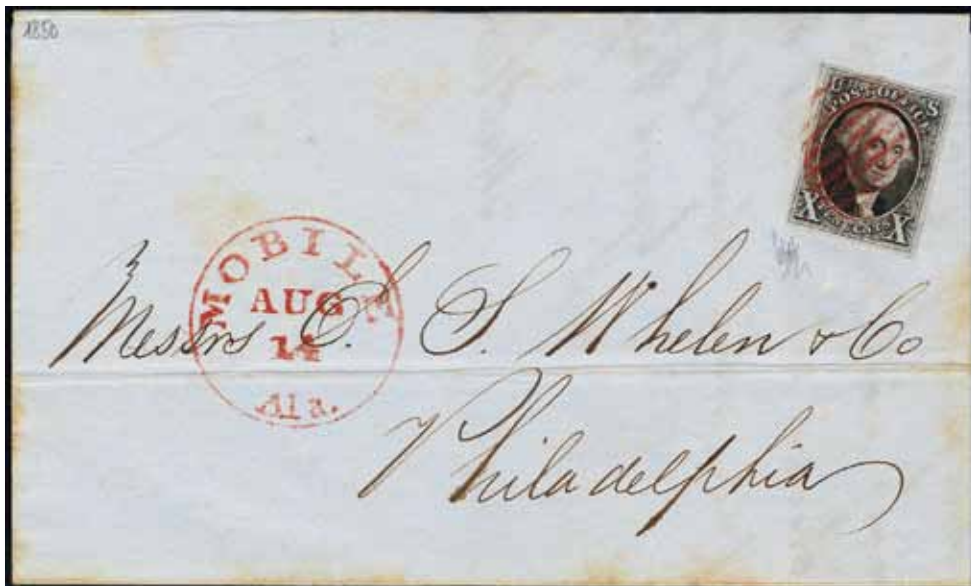 1850
U.S.
POST OFFICE
X X
MOBILE
AUG
14
Ala.
Messrs S. Whelen & Co
Philadelphia